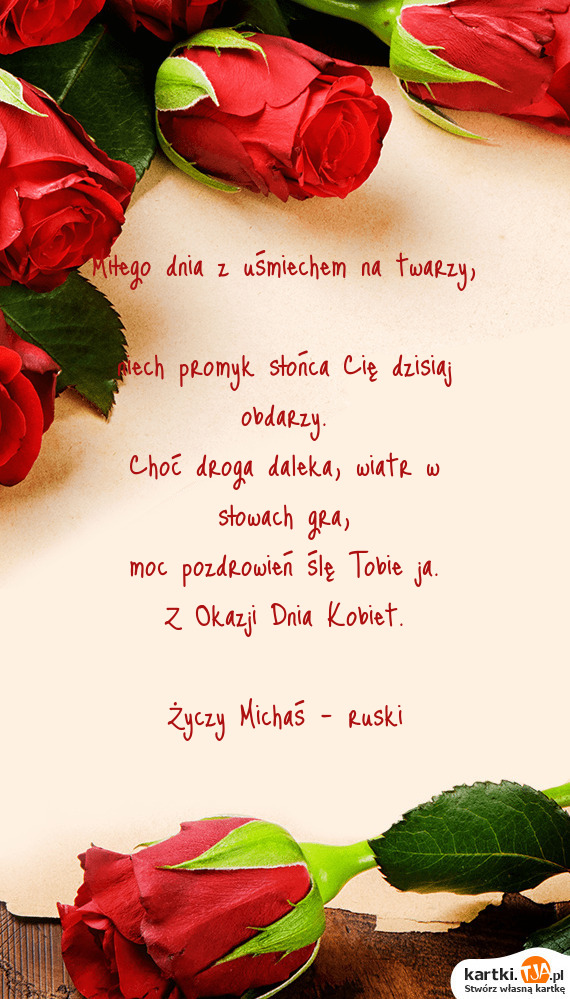 Miłego dnia z uśmiechem na twarzy,
niech promyk słońca Cię dzisiaj
obdarzy.
Choć droga daleka, wiatr w
słowach gra,
moc pozdrowień ślę Tobie ja.
Z Okazji Dnia Kobiet.
Życzy Michaś - ruski
kartki.TJA.pl
Stwórz własną kartkę